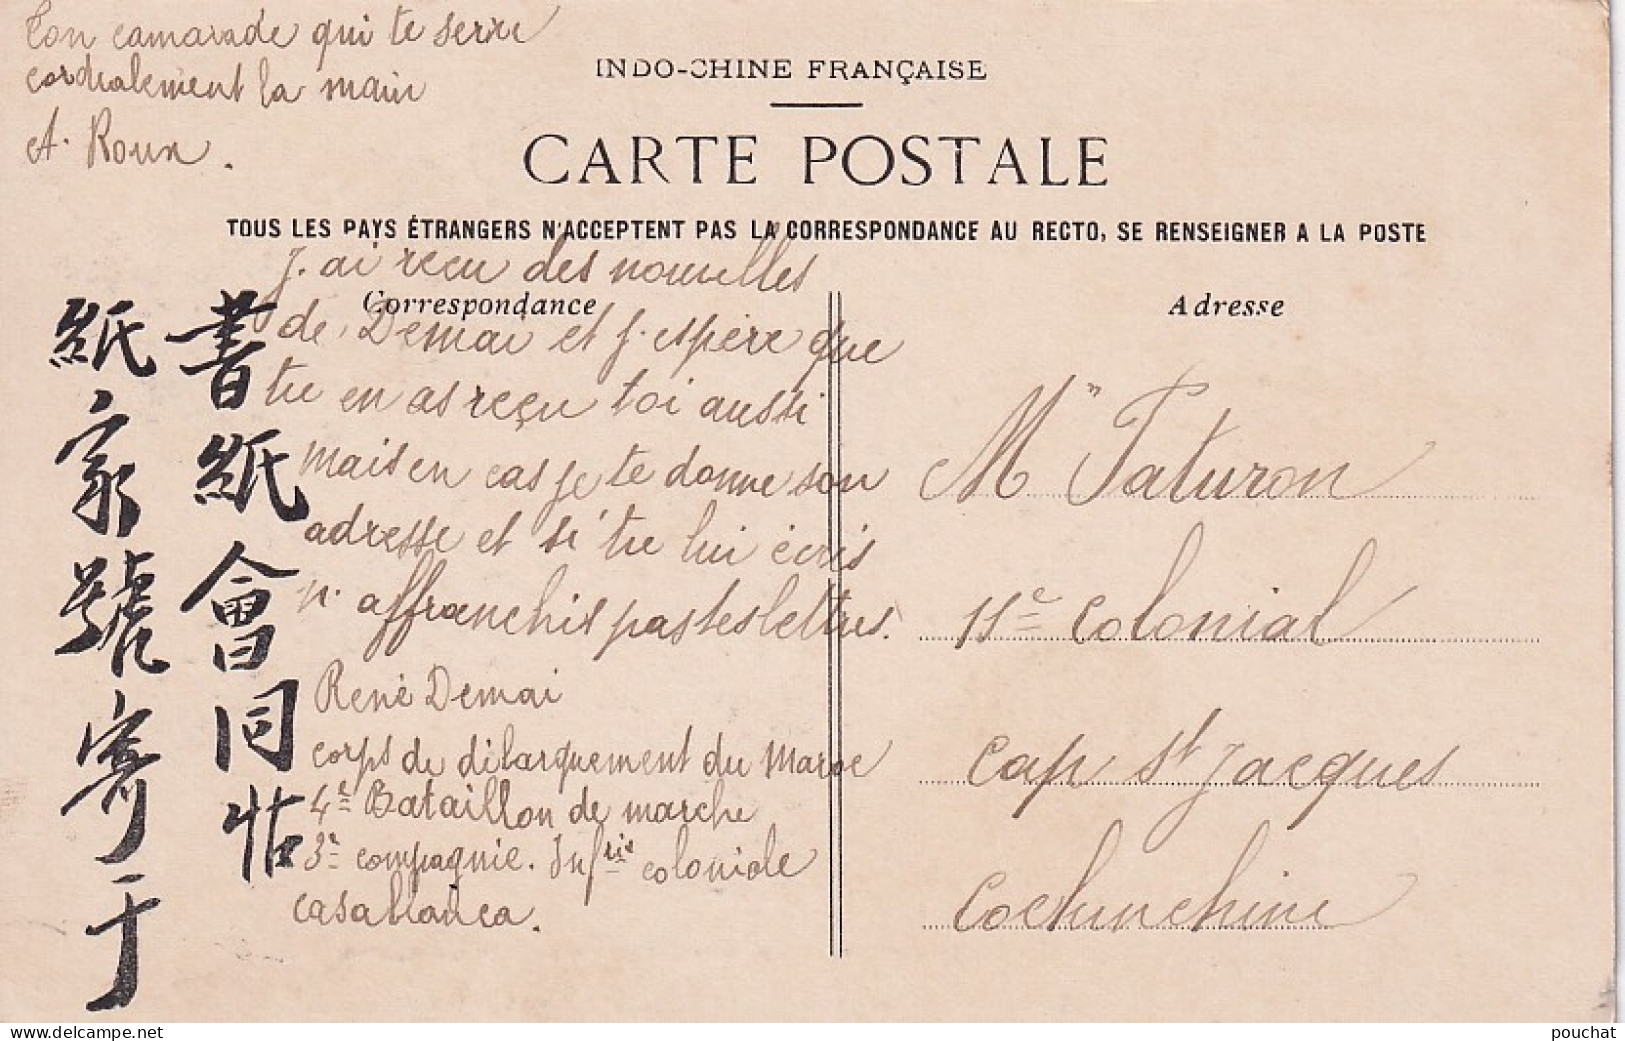 Ton camarade qui te serre
cordialement la main
A. Roux.
INDO-CHINE FRANÇAISE
CARTE POSTALE
TOUS LES PAYS ÉTRANGERS N'ACCEPTENT PAS LA CORRESPONDANCE AU RECTO, SE RENSEIGNER A LA POSTE
Correspondance
J'ai reçu des nouvelles
de Demai et j'espère que
tu en as reçu toi aussi
mais en cas je te donne son
adresse et si tu lui écris
n'affranchis pas tes lettres.
René Demai
corps de débarquement du Maroc
4e Bataillon de marche
3e compagnie. Infrie coloniale
Casablanca.
書紙會同帖
紙家號寄于
Adresse
Mr Paturon
11e Colonial
Cap St Jacques
Cochinchine
www.delcampe.net
pouchat